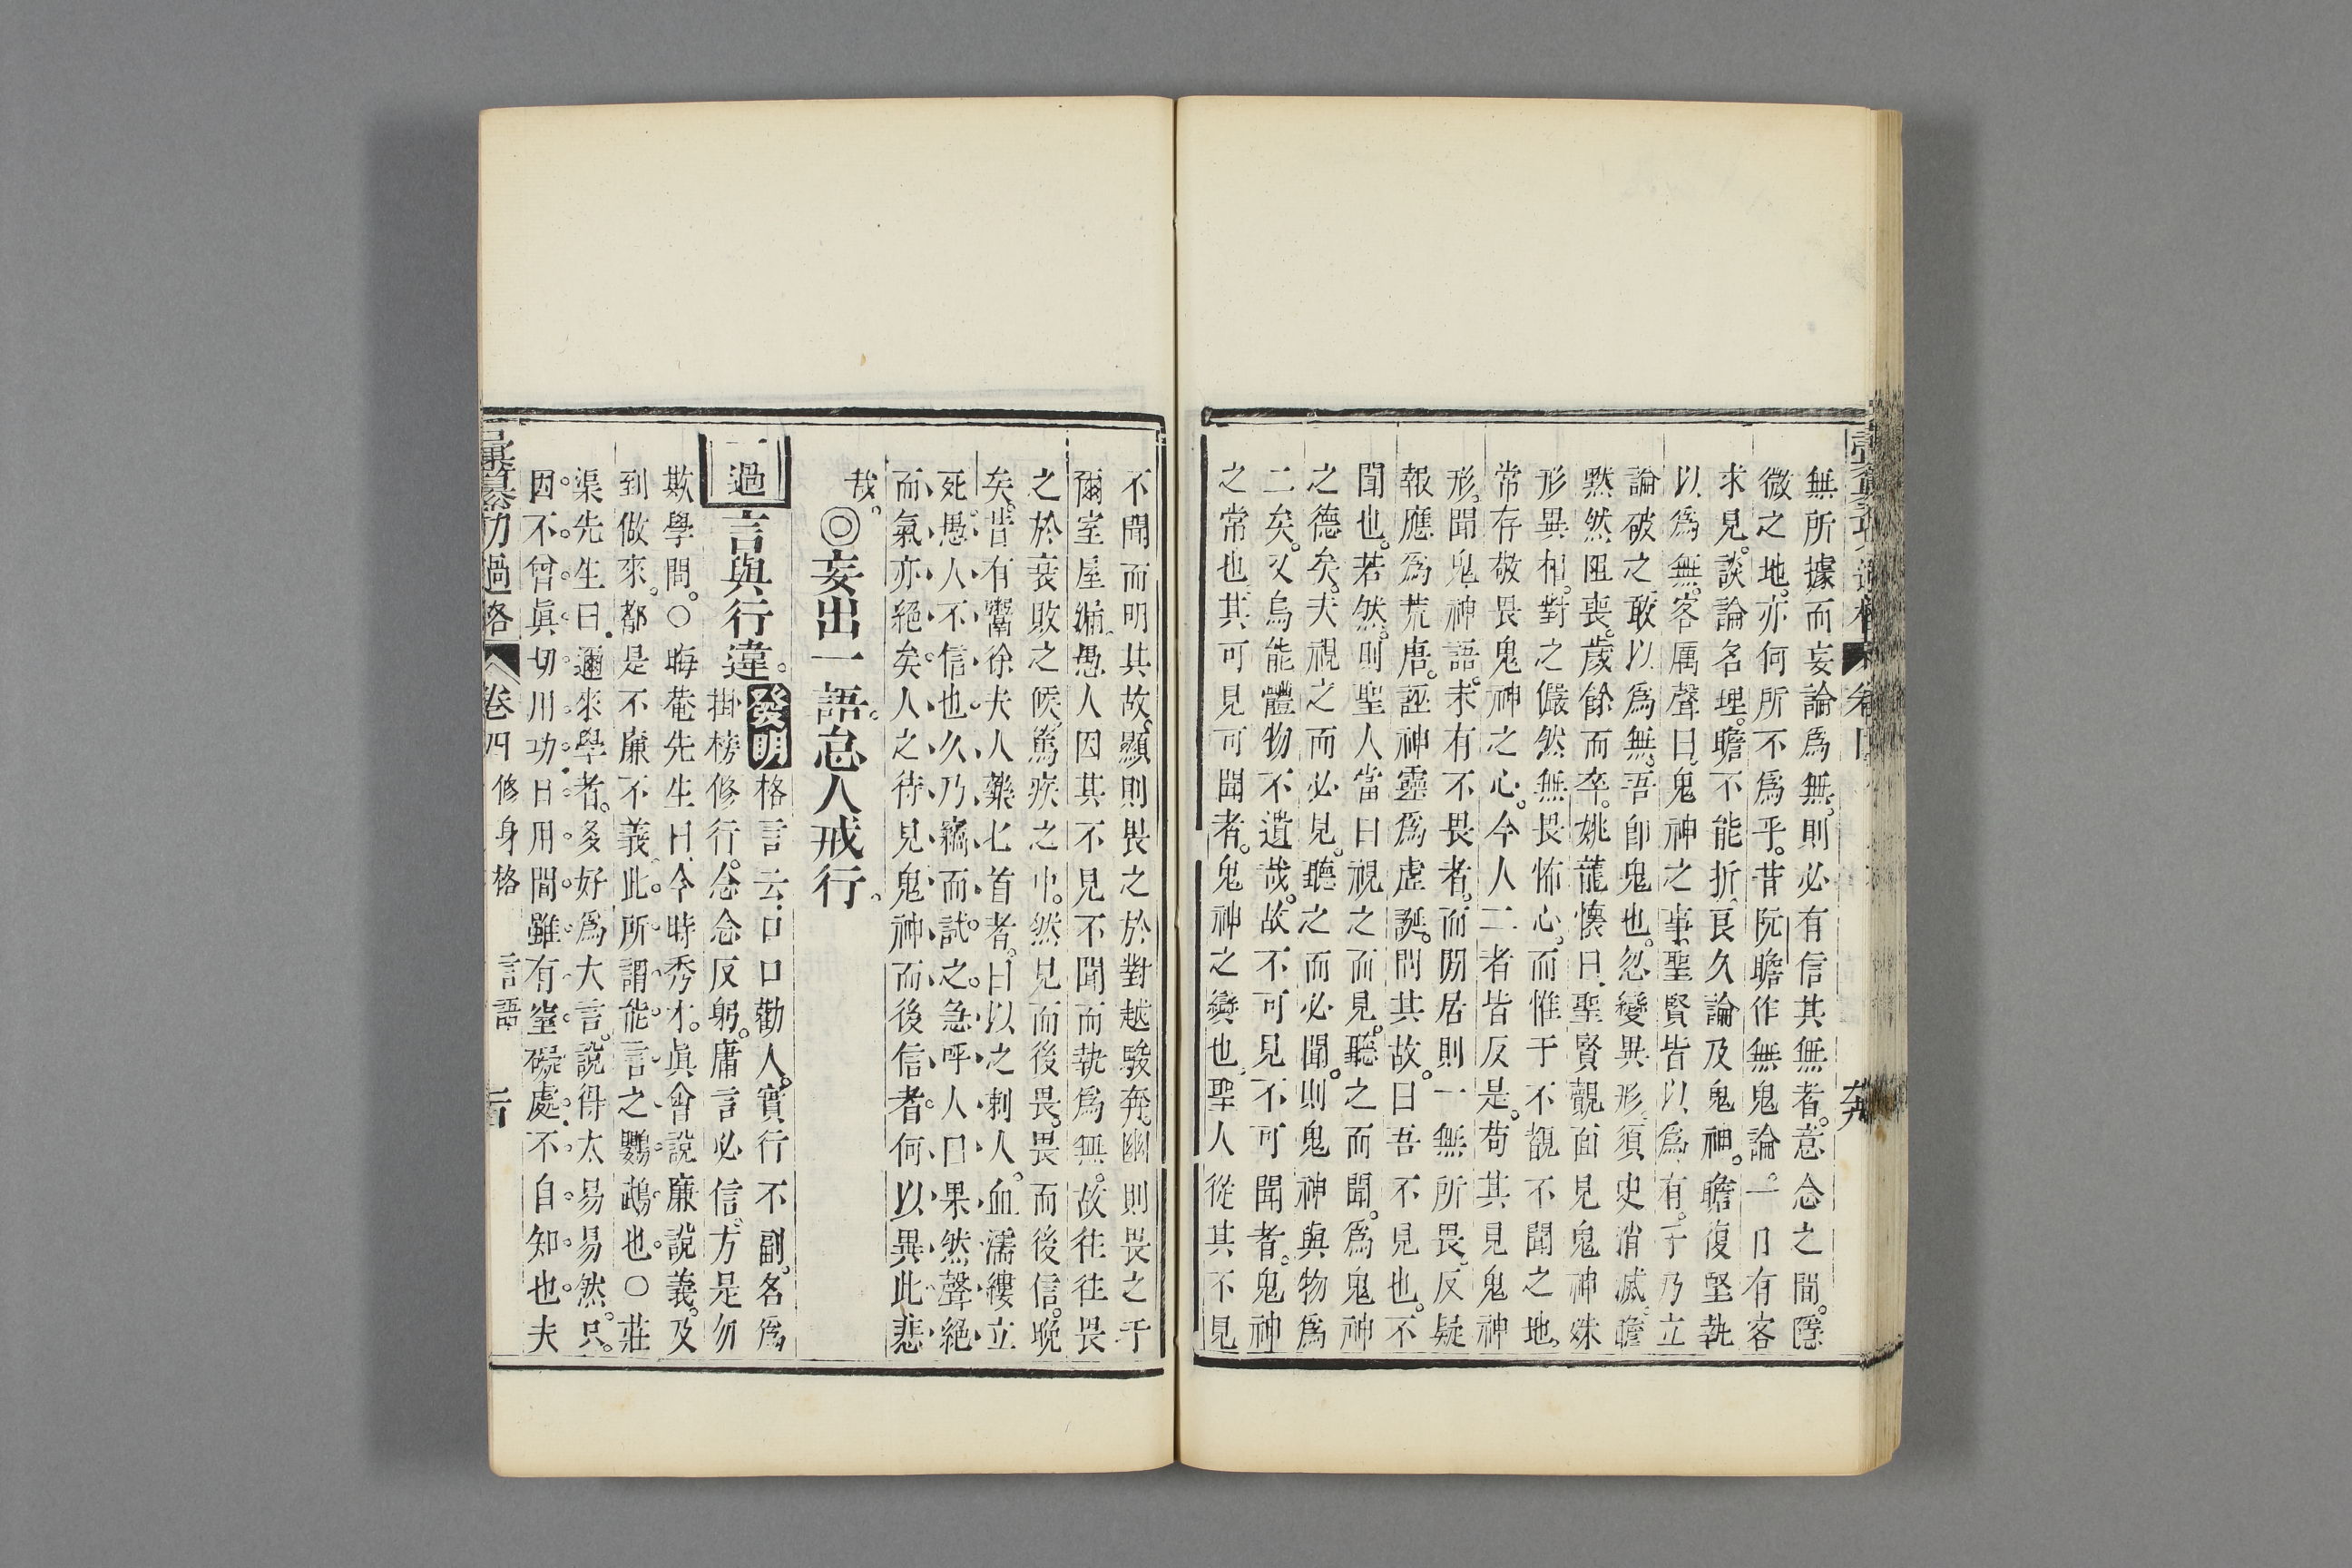 無所據而妄論爲無。則必有信其無者。意念之間。隱
微之地。亦何所不爲乎。昔阮瞻作無鬼論。一日有客
求見。談論名理。瞻不能折。良久論及鬼神。瞻復堅執
以爲無。客厲聲曰。鬼神之事。聖賢皆以爲有。子乃立
論破之。敢以爲無。吾卽鬼也。忽變異形。須臾消滅。瞻
黙然阻喪。歲餘而卒。姚龍懷曰。聖賢覿面見鬼神。姝
形異相。對之儼然無畏怖心。而惟于不覩不聞之地。
常存敬畏鬼神之心。今人二者皆反是。苟其見鬼神
形。聞鬼神語。未有不畏者。而閒居則一無所畏。反疑
報應爲荒唐。誣神靈爲虛誕。問其故。曰吾不見也。不
聞也。若然。則聖人當曰視之而見。聽之而聞。爲鬼神
之德矣。夫視之而必見。聽之而必聞。則鬼神與物爲
二矣。又烏能體物不遺哉。故不可見不可聞者。鬼神
之常也。其可見可聞者。鬼神之變也。聖人從其不見
不聞而明其故。顯則畏之於對越駿奔。幽則畏之于
爾室屋漏。愚人因其不見不聞而執爲無。故往往畏
之於衰敗之候。篤疾之中。然見而後畏。畏而後信。晚
矣。昔有鬻徐夫人藥匕首者。曰以之刺人。血濡縷立
死。愚人不信也。久乃竊而試之。急呼人曰果然。聲絕
而氣亦絕矣。人之待見鬼神而後信者。何以異此。悲
哉。
◎妄出一語。怠人戒行。
一過
言與行違。
發明
格言云。口口勸人。實行不副。名爲
掛榜修行。念念反躬。庸言必信。方是勿
欺學問。○晦菴先生曰。今時秀才。眞會說廉說義。及
到做來。都是不廉不義。此所謂能言之鸚鵡也。○莊
渠先生曰。邇來學者。多好爲大言。說得太易易然。只。
因。不。曾。眞。切。用。功。日。用。間。雖。有。窒。礙。處。不。自。知。也。夫
彙纂功過格
卷四
修身格
言語